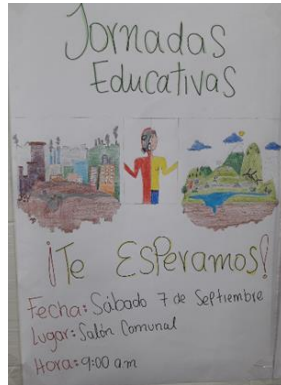 Jornadas
Educativas
¡Te Esperamos!
Fecha: Sábado 7 de Septiembre
Lugar: Salón Comunal
Hora: 9:00 am